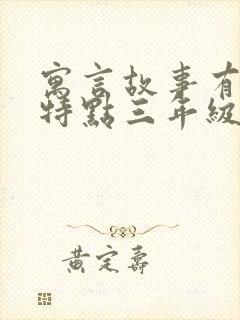 寓言故事有
特點三年級
黃定壽